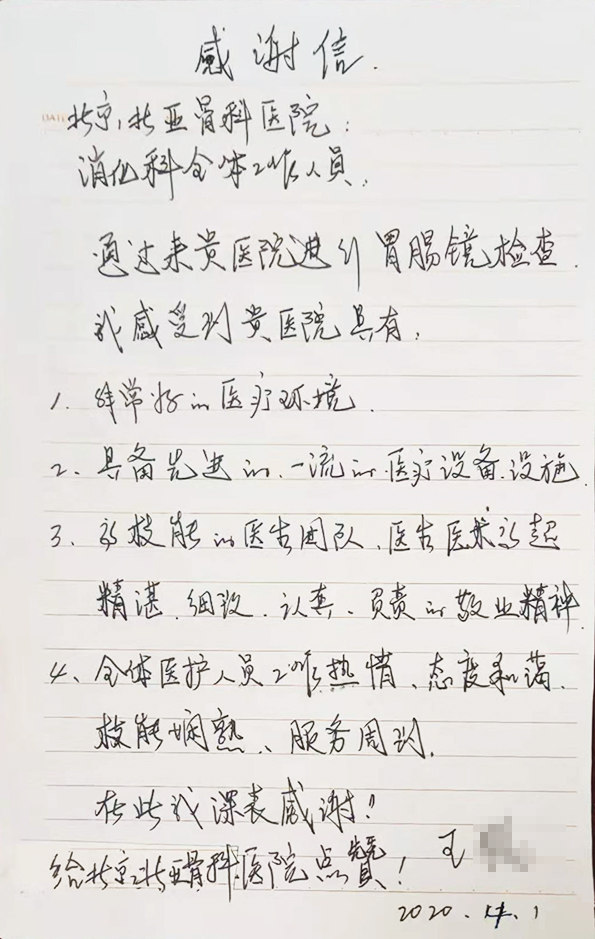 感谢信.
DATE
北京,北亚骨科医院:
消化科全体工作人员:
通过来贵医院进行胃肠镜检查.
我感受到贵医院具有:
1. 非常好的医疗环境.
2、具备先进的.一流的.医疗设备.设施
3、高技能的医生团队、医生医术高超
精湛.细致.认真、负责的敬业精神.
4、全体医护人员工作热情、态度和蔼.
技能娴熟、服务周到.
在此我深表感谢!
王
给北京北亚骨科医院点赞!
2020. 1